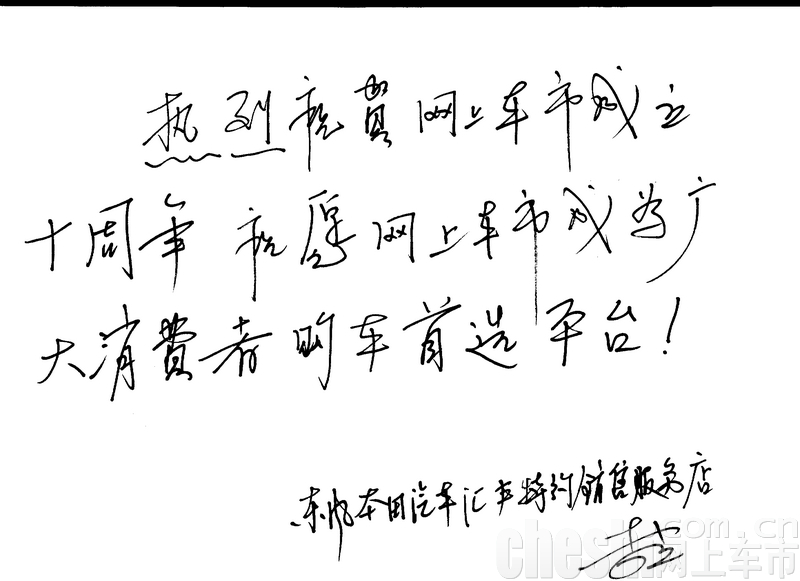 热烈祝贺网上车市成立
十周年 祝愿网上车市成为广
大消费者购车首选平台!
东风本田汽车汇丰特约销售服务店
cheshi
.com.cn
网上车市